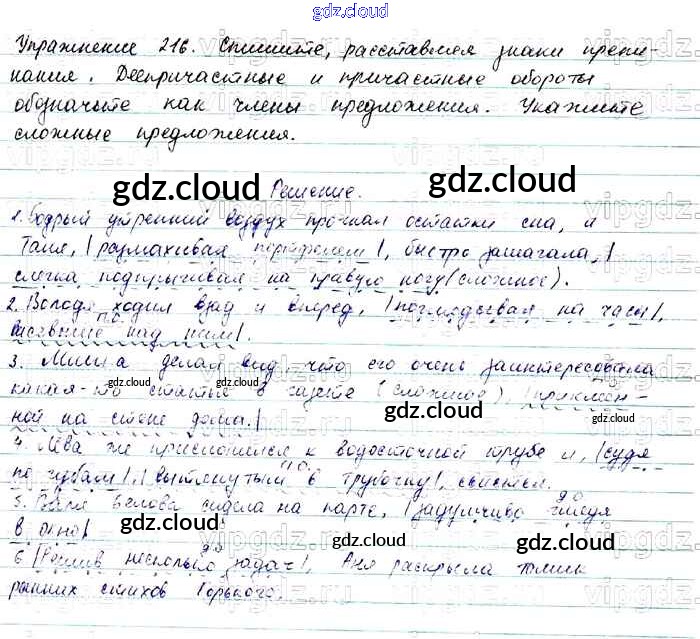 gdz.cloud
Упражнение 216. Спишите, расставляя знаки препи-
нания. Деепричастные и причастные обороты
обозначьте как члены предложения. Укажите
сложные предложения.
gdz.cloud Решение. gdz.cloud
1. Бодрый утренний воздух прогнал остатки сна, и
Таня, |размахивая портфелем|, быстро зашагала, |
слегка подпрыгивая на правую ногу (сложное).
2. Володя ходил взад и вперед, |поглядывая на часы|,
висевшие над ним|.
3. Миша делал вид, что его очень заинтересовала
какая-то статья в газете (сложное), |приклеен-
ной на стене дома.|
4. Лёва же прислонился к водосточной трубе и, |судя
по губам|, |вытянутым в трубочку|, свистел.
5. Валя Белова сидела на парте, |задумчиво глядя
в окно|
6 |Решив несколько задач|, Аня раскрыла томик
ранних стихов Горького.